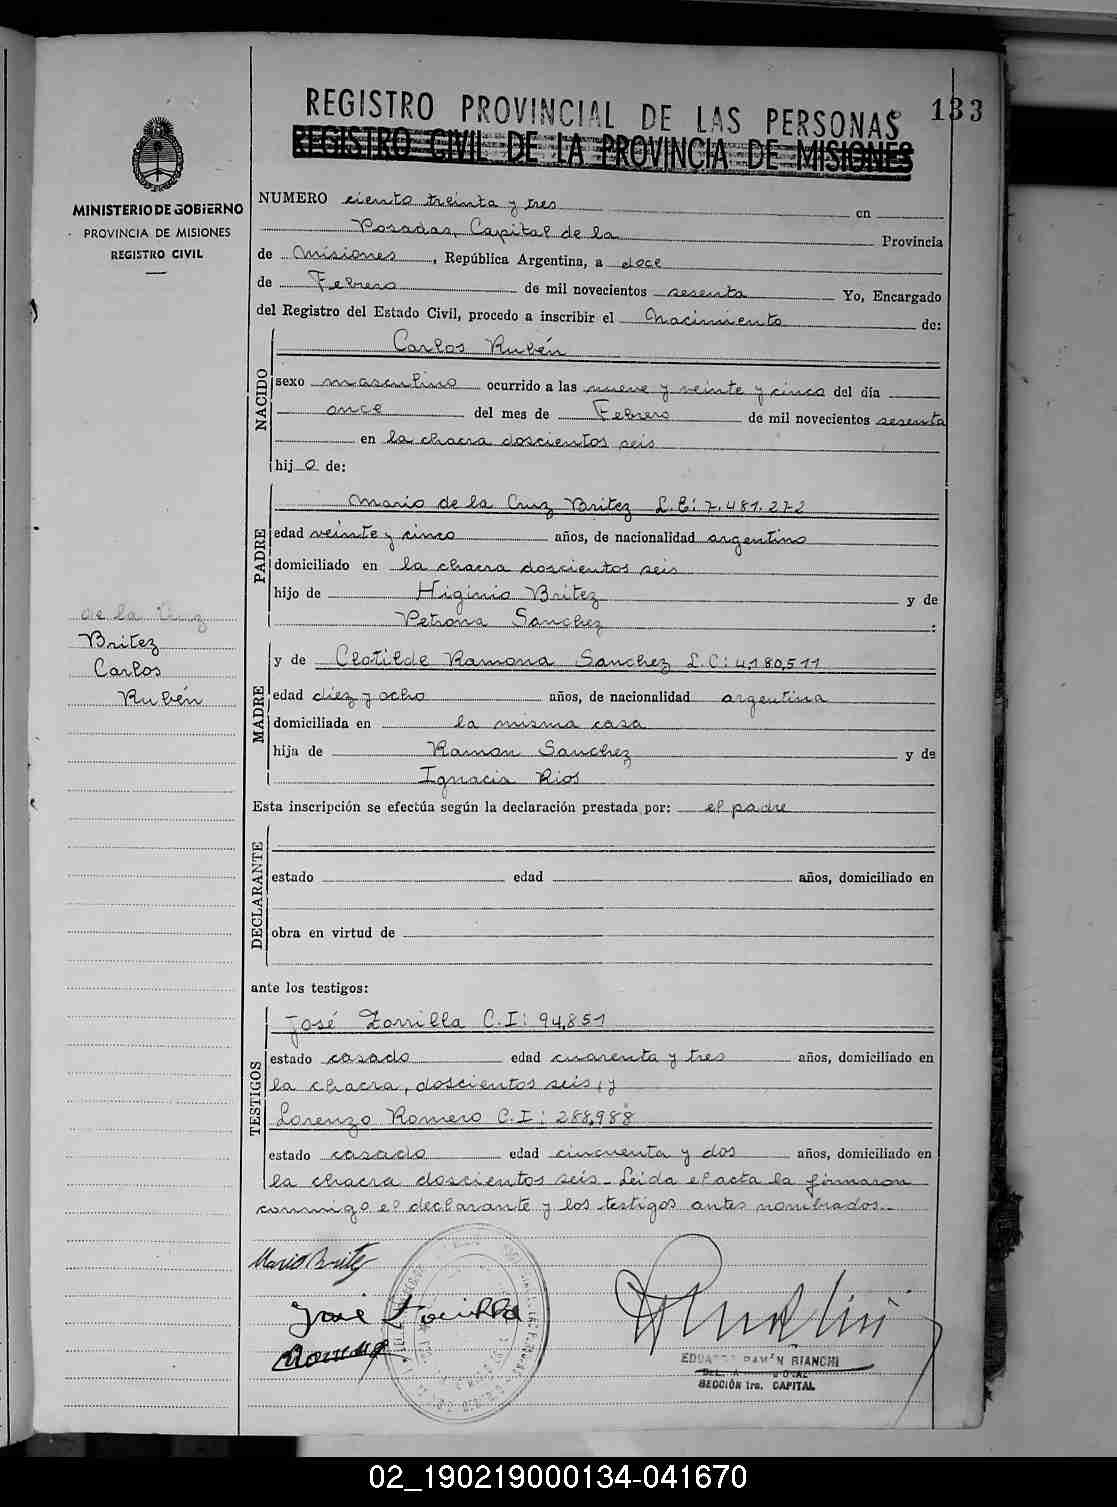 REGISTRO PROVINCIAL DE LAS PERSONAS 133
REGISTRO CIVIL DE LA PROVINCIA DE MISIONES
MINISTERIO DE GOBIERNO
PROVINCIA DE MISIONES
REGISTRO CIVIL
NUMERO ciento treinta y tres en
Posadas, Capital de la Provincia
de Misiones, República Argentina, a doce
de Febrero de mil novecientos sesenta Yo, Encargado
del Registro del Estado Civil, procedo a inscribir el Nacimiento de:
NACIDO
Carlos Rubén
sexo masculino ocurrido a las nueve y veinte y cinco del día
once del mes de Febrero de mil novecientos sesenta
en la chacra doscientos seis
hijo de:
PADRE
Mario de la Cruz Britez L.E: 7.481.272
edad veinte y cinco años, de nacionalidad argentino
domiciliado en la chacra doscientos seis
hijo de Higinio Britez y de
Petrona Sanchez :
de la Cruz
Britez
Carlos
Rubén
MADRE
y de Clotilde Ramona Sanchez L.C: 4,180,511
edad diez y ocho años, de nacionalidad argentina
domiciliada en la misma casa
hija de Ramon Sanchez y de
Ignacia Rios
Esta inscripción se efectúa según la declaración prestada por: el padre
DECLARANTE
estado edad años, domiciliado en
obra en virtud de
ante los testigos:
TESTIGOS
José Zorrilla C.I: 94,851
estado casado edad cuarenta y tres años, domiciliado en
la chacra, doscientos seis, y
Lorenzo Romero C.I: 288,988
estado casado edad cincuenta y dos años, domiciliado en
la chacra doscientos seis. Leida el acta la firmaron
conmigo el declarante y los testigos antes nombrados.-
Mario Britez
José Zorrilla
Romero
EDUARDO RAMÓN BIANCHI
SECCIÓN 1ra. CAPITAL
02_190219000134-041670